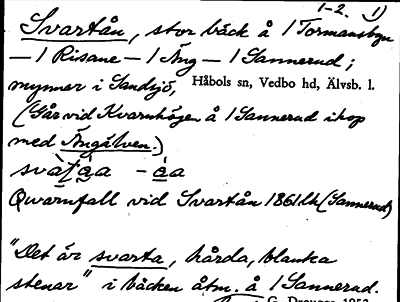 1-2. 1)
Svartån, stor bäck å 1 Tormansbyn
— 1 Risane — 1 Äng — 1 Sannerud;
mynnar i Sandsjö, Håbols sn, Vedbo hd, Älvsb. l.
(Går vid Kvarnhögen å 1 Sannerud ihop
med Ängälven.)
Qvarnfall vid Svartån 1861 lh (Sannerud)
"Det är svarta, hårda, blanka
stenar" i bäcken åtm. å 1 Sannerud.